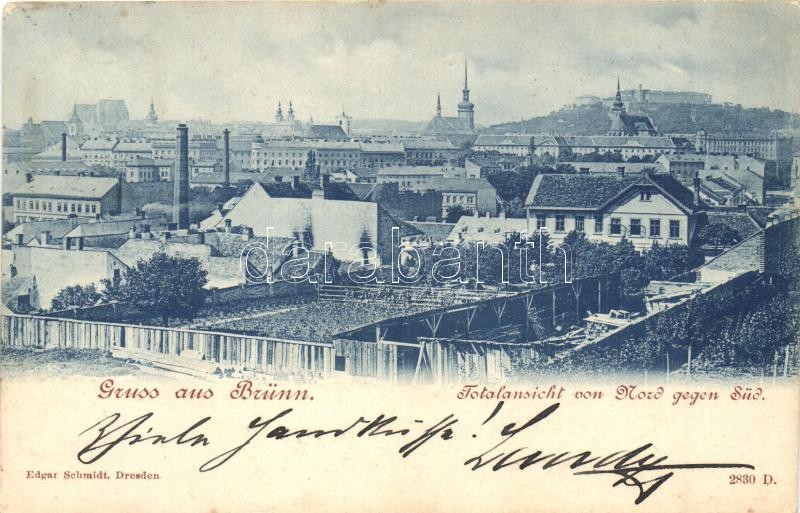 darabanth
Gruss aus Brünn.
Totalansicht von Nord gegen Süd.
Viele Handküsse!
Edgar Schmidt, Dresden
2830 D.